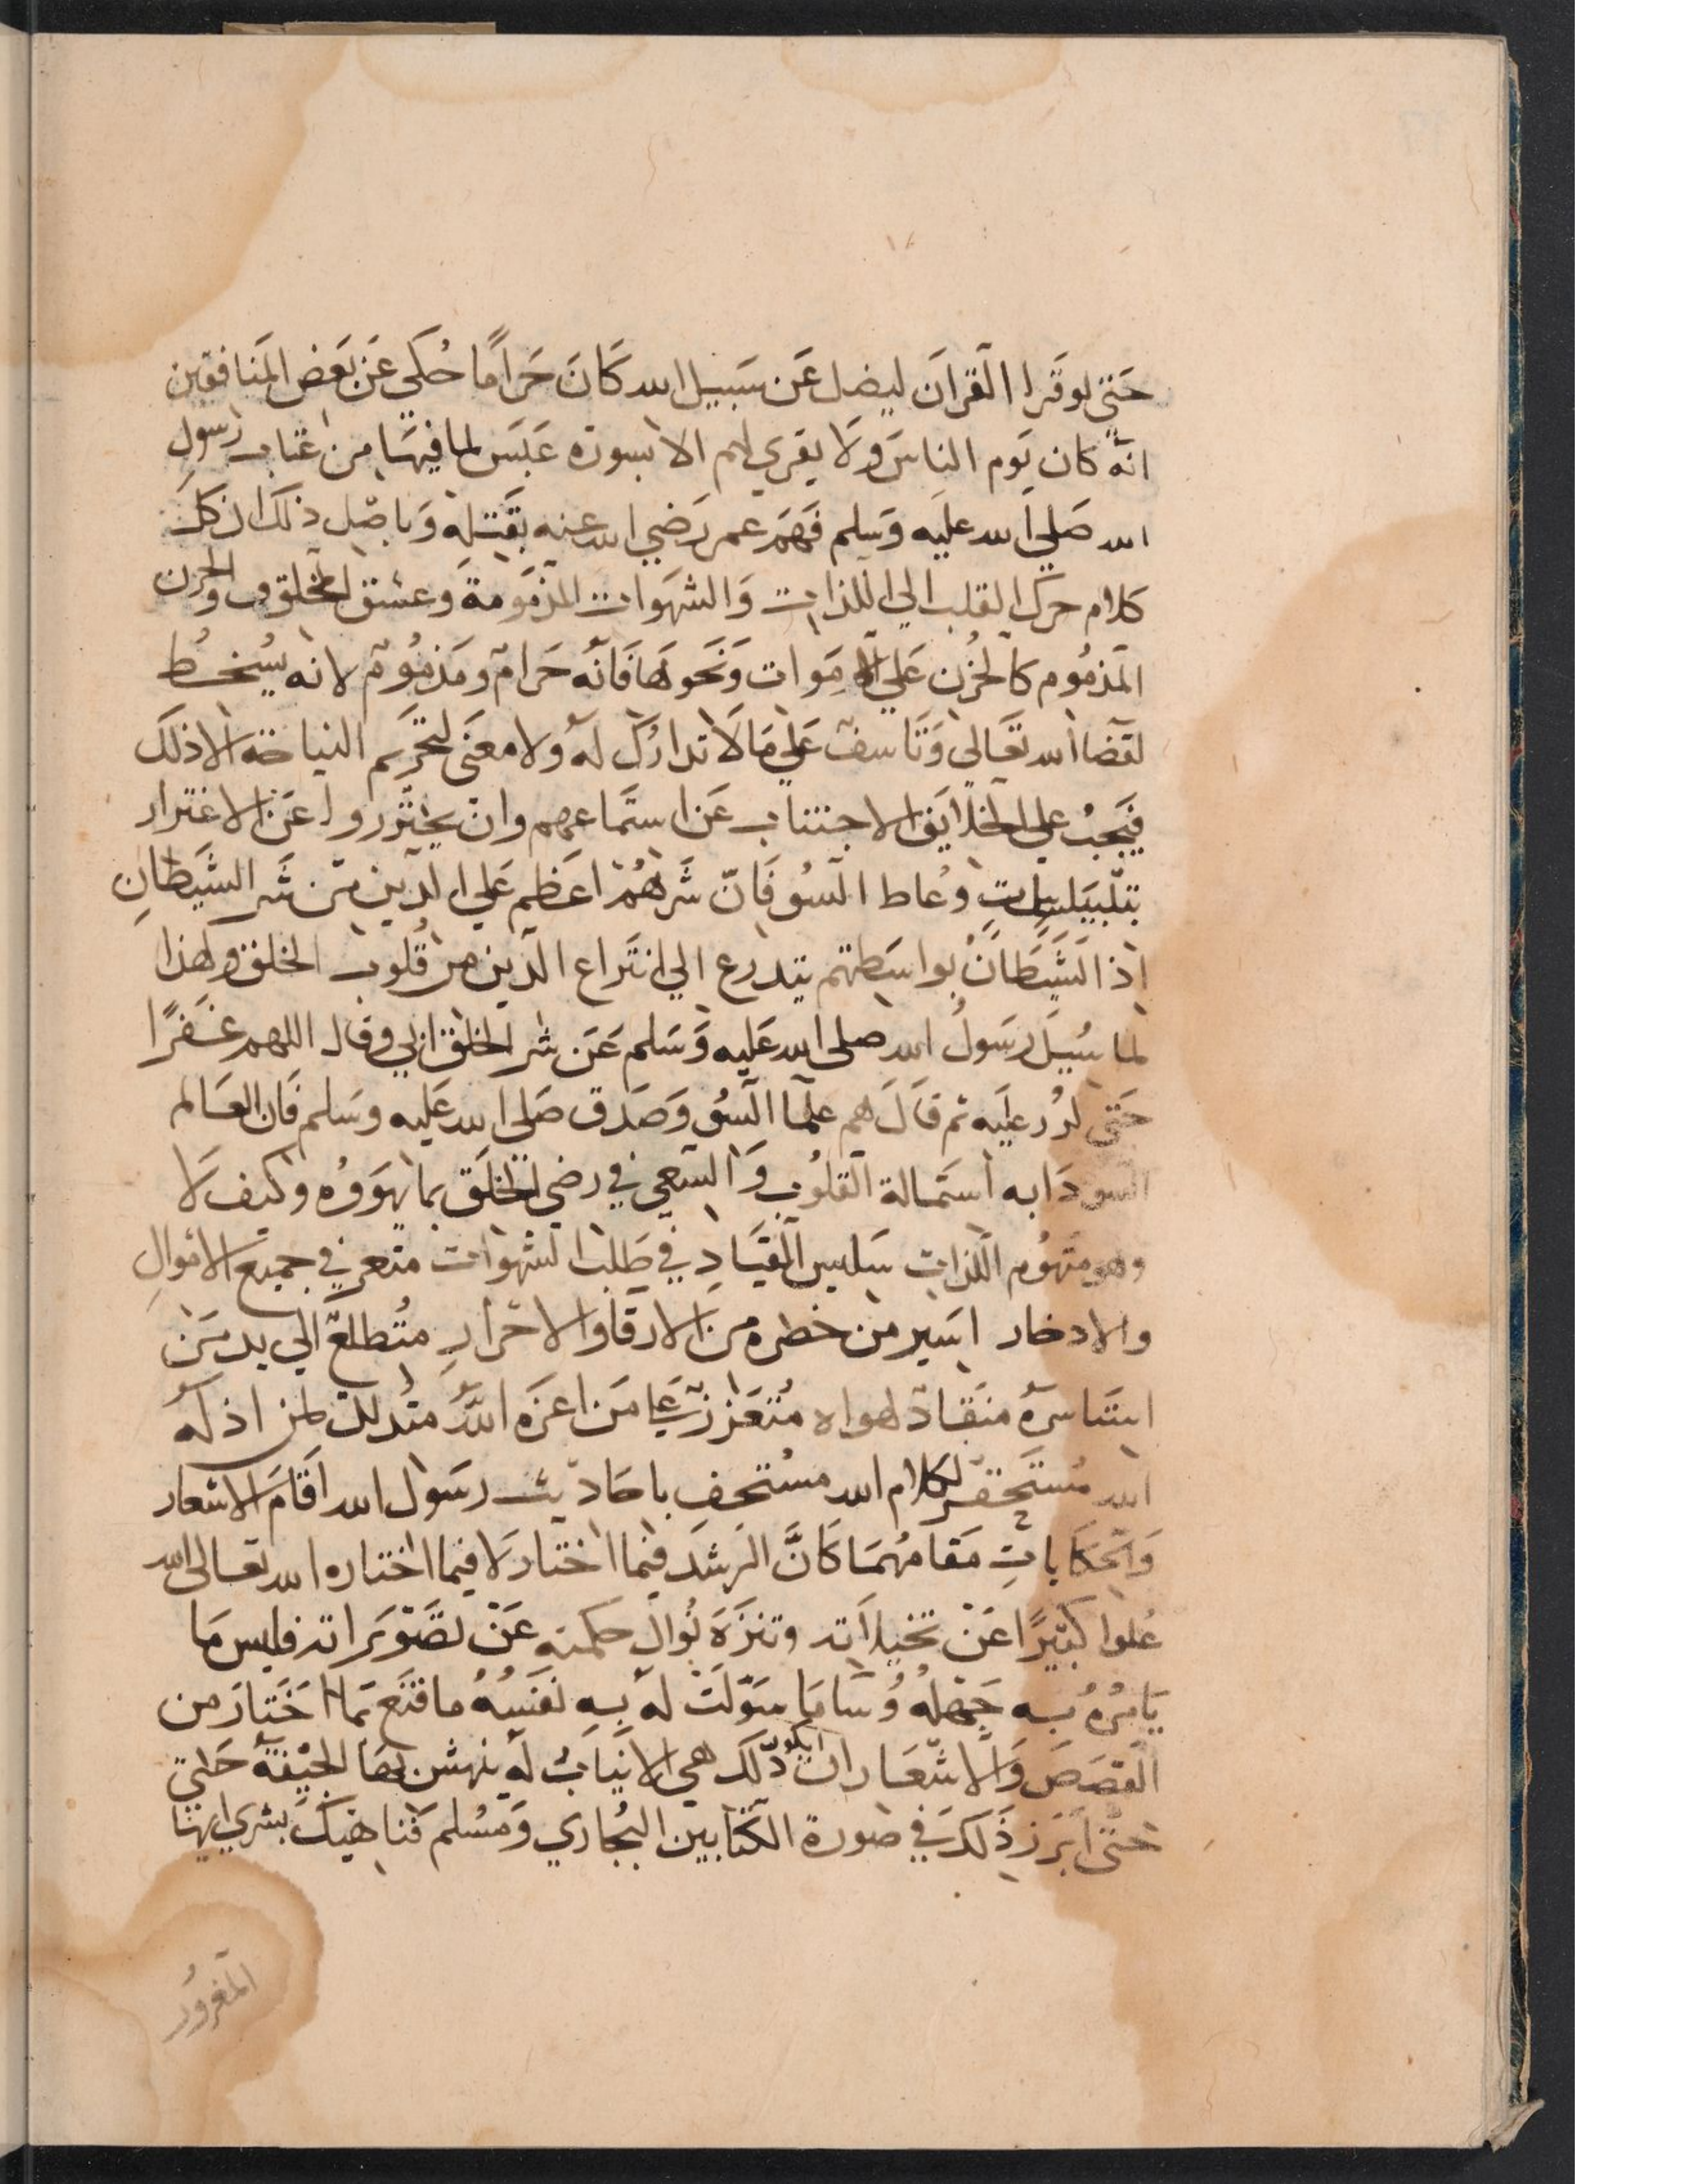 حَتى لوقَرا القرانَ ليضل عَن سَبيل الله كَانَ حَرامًا حُكي عَن بَعَض المنَافقين
انهُ كان يَوم الناسَ وَلَا يقري لهم الا بسورة عَبَسَ لما فيهَا من عتاب رسول
الله صَلي الله عليَه وَسَلم فَهَمَ عمر رَضي الله عنه بقَتله وَباصْل ذلك ان كل
كلام حرك القلب الي اللذات وَالشهَوات المذمَومةَ وعشق المخلوق والحزن
المَذمُوم كالحُزن عَلي الامَوات وَنَحو هَا فَانهُ حَرامٌ ومَذمُوم لانه يسُخط
لقضا الله تعَالى وَتَاسف عَلي مَا لَا تداركَ لهُ ولا معنَى لتحَريم النياحة الا ذلك
فيَجبُ علي الخلايَق الاجتناب عَن استمَاعهم وان يحتَرزوا عَن الاغترار
بتلبَيسات وعُاظ السُو فَانّ شَرهُمْ اعَظم عَلي الدين من شَر الشيَطانِ
اذ الشيَطانُ بواسَطتهم يتدرع الي انتَراع الدين من قُلوب الخلق ولهذا
لما سُيلَ رَسَولُ الله صلى الله عَليه وَسَلم عَن شر الخلق ابي وقال اللهم غفرًا
حَتى كرر عليَه ثم قَالَ هم علمَا السُو وَصَدق صَلي الله عَليه وسَلم فَان العَالم
السو دَابه استمَالة القلُوب وَالسَعي في رضي الخلَق بما يهَووُه وكيف لَا
وهو منهُوم اللذات سَليس القيَادِ في طَلب الشهوات متعر في جميع الامَوالِ
والادخار اسَير من خطره من الارقا والاحَرارِ متُطلعٌ الي يد مَن
استاسَرهُ منقَادٌ لهواه مُتعَززٌ عَلي مَن اعزَه اللهُ متُدللٌ لمن اذلهُ
الله مُستَحقرٌ لكلام الله مستُحف باحَاديث رسَول الله اقَامَ الاشعار
وَالحكَاياتِ مقَامهُمَا كَانَّ الرشدَ فيما اختارَ لا فيما اختاره الله تعَالى الله
عُلوا كبَيرًا عَن تخيلاَته وتنزَهَ نُوال حكمته عَن تصَوَيَراته فليس مَا
يَامرُهُ بِه جَهلهُ وُسَامَا سَوّلتْ لهُ بِهِ نفَسُهُ ما قنَع بمَا اخَتارَ من
القصَصَ وَالاشعَار ان يكون ذلكَ هي الانيَابُ لهُ ينهشَ بهَا الجيفهَ حَتي
حتى ابَرَز ذَلكَ في صورة الكتَابين البخُاري وَمسُلم فنَاهيَك بشري ايهَا
المَغرُور